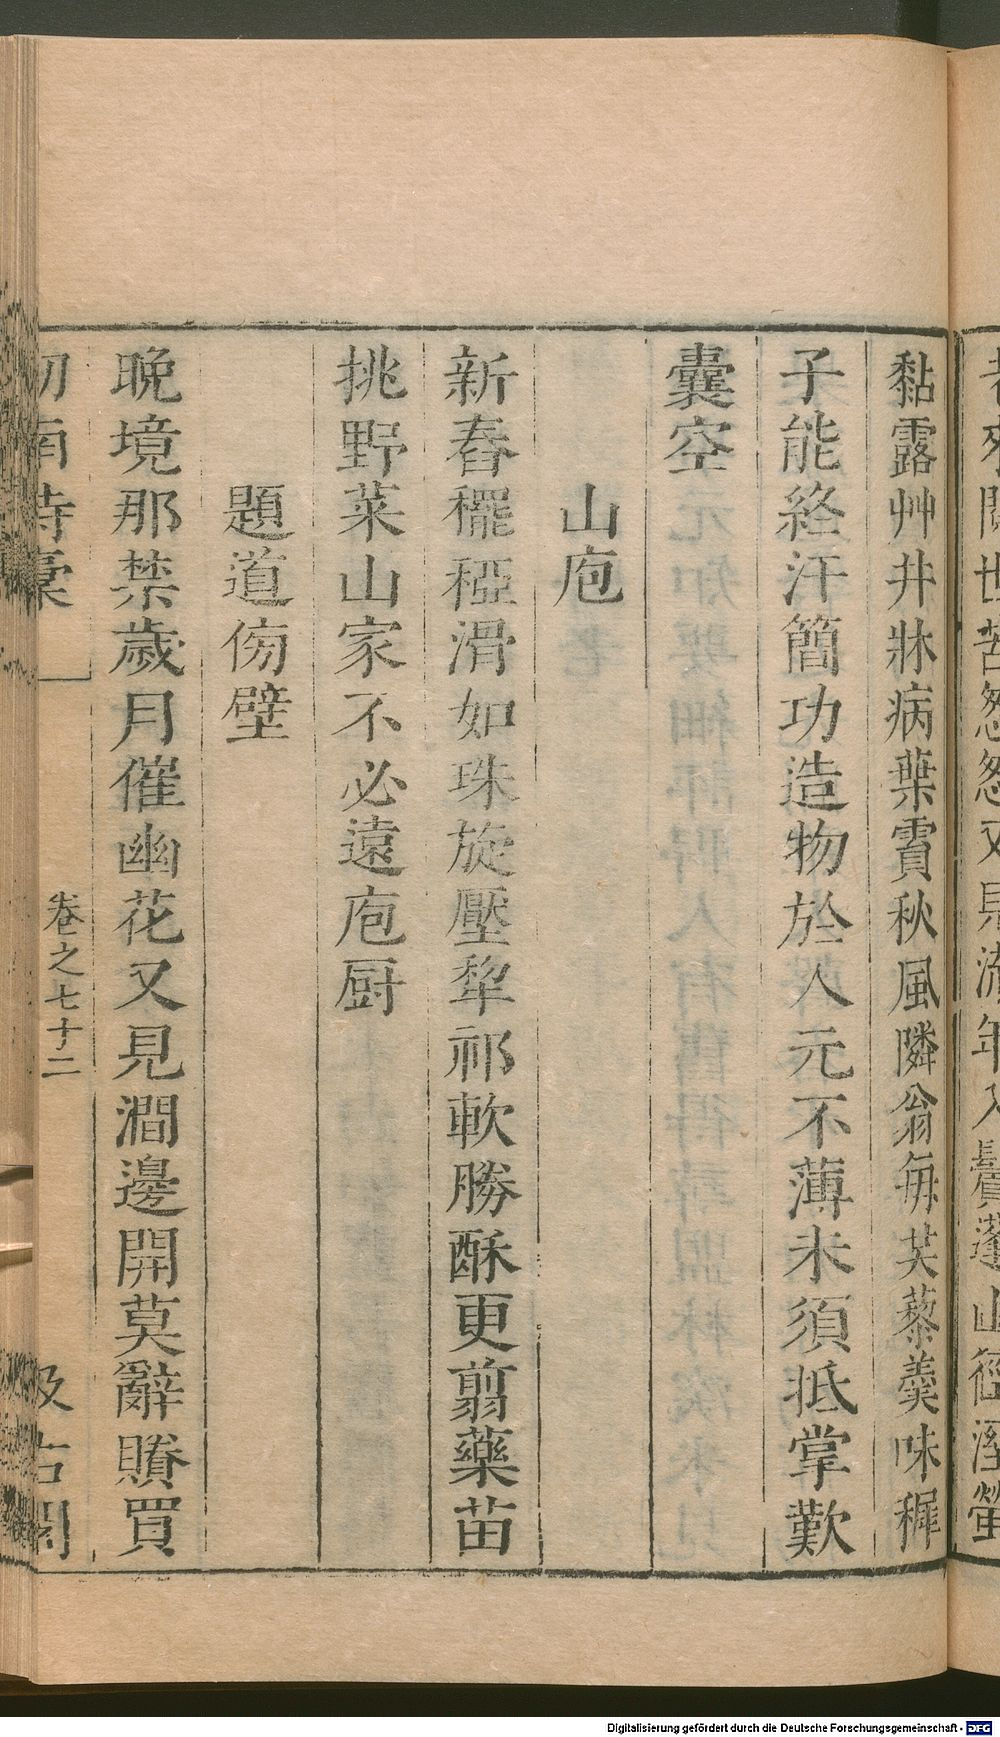 黏露艸井牀病葉霣秋風隣翁每芺藜羹味稺
子能終汗簡功造物於人元不薄未須抵掌歎
囊空
山庖
新舂䆉稏滑如珠旋壓犂祁軟勝酥更翦藥苗
挑野菜山家不必遠庖厨
題道傍壁
晚境那禁歲月催幽花又見澗邊開莫辭賸買
卷之七十二
Digitalisierung gefördert durch die Deutsche Forschungsgemeinschaft - DFG